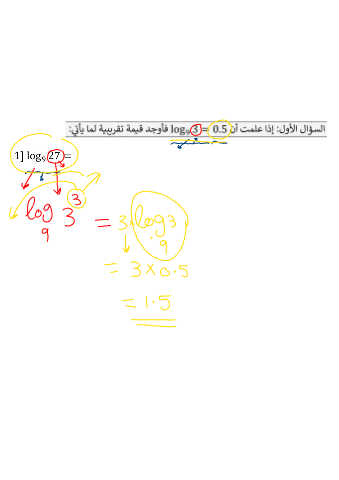 السؤال الأول: إذا علمت أن log₉ 3 = 0.5 فأوجد قيمة تقريبية لما يأتي:
1] log₉ 27 =
log₉ 3³ = 3 log₉ 3
= 3 × 0.5
= 1.5